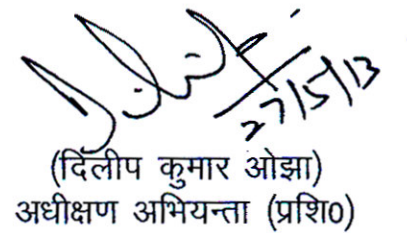 27/5/13
(दिलीप कुमार ओझा)
अधीक्षण अभियन्ता (प्रशि0)